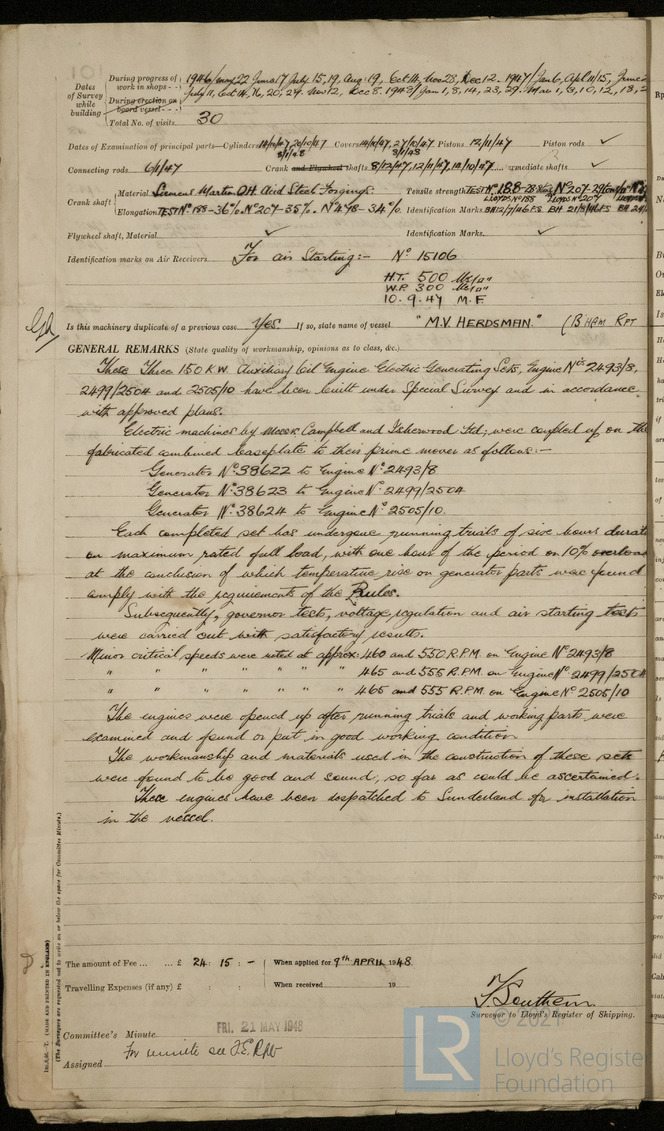 Dates of Survey while building
During progress of work in shops - - 1946/May 22 June 17 July 15, 19, Aug 19, Oct 14, Nov 28, Dec 12. 1947/Jan 6, Apl 11/15, June
During erection on board vessel - - - July 11, Oct 14, 16, 20, 27. Nov 12, Dec 8. 1948/Jan 1, 8, 14, 23, 29. Mar 1, 3, 10, 12, 18,
Total No. of visits 30
Dates of Examination of principal parts—Cylinders 20/10/47 8/1/48 Covers 27/10/47 8/1/48 Pistons 12/11/47 Piston rods ✓
Connecting rods 6/1/47 Crank and Flywheel shafts 8/12/47, 12/11/47, Intermediate shafts ✓
Crank shaft Material Siemens Martin OH Acid Steel Forgings Tensile strength TEST Nº 188-28 Nº 207-29
LLOYDS Nº 188 LLOYDS Nº 207
Elongation TEST Nº 188-36% Nº 207-35% Nº 498-34% Identification Marks BH 12/7/46 F.S. BH
Flywheel shaft, Material ✓ Identification Marks ✓
Identification marks on Air Receivers For air Starting:- Nº 15106
H.T. 500 lbs/□"
W.P. 300 lbs/□"
10.9.47 M.F
Is this machinery duplicate of a previous case Yes. If so, state name of vessel "M.V. HERDSMAN." (B'HAM RPT
GENERAL REMARKS (State quality of workmanship, opinions as to class, &c.)
These Three 150 K.W. Auxiliary Oil Engine Electric Generating Sets, Engine Nos 2493/8,
2499/2504 and 2505/10 have been built under Special Survey and in accordance
with approved plans.
Electric machines by Messrs Campbell and Isherwood Ltd; were coupled up on the
fabricated combined baseplate to their prime mover as follows:-
Generator Nº 38622 to Engine Nº 2493/8
Generator Nº 38623 to Engine Nº 2499/2504
Generator Nº 38624 to Engine Nº 2505/10.
Each completed set has undergone running trials of six hours durat
on maximum rated full load, with one hour of the period on 10% overload
at the conclusion of which temperature rise on generator parts were found
comply with the requirements of the Rules.
Subsequently, governor tests, voltage regulation and air starting tests
were carried out with satisfactory results.
Minor critical speeds were noted at approx: 460 and 550 R.P.M. on Engine Nº 2493/8
" " " " " " " 465 and 555 R.P.M. on Engine Nº 2499/2504
" " " " " " " 465 and 555 R.P.M. on Engine Nº 2505/10
The engines were opened up after running trials and working parts were
examined and found or put in good working condition
The workmanship and materials used in the construction of these sets
were found to be good and sound, so far as could be ascertained.
These engines have been despatched to Sunderland for installation
in the vessel.
(The Surveyors are requested not to write on or below the space for Committee Minute.)
(MADE AND PRINTED IN ENGLAND)
The amount of Fee ... ... £ 24 : 15 : - When applied for 9th APRIL 1948.
Travelling Expenses (if any) £ : : When received 19
F. Southern
Surveyor to Lloyd's Register of Shipping.
FRI. 21 MAY 1948
Committee's Minute
For minute see F.E. Rpt
Assigned
© 2021
LR
Lloyd's Register
Foundation